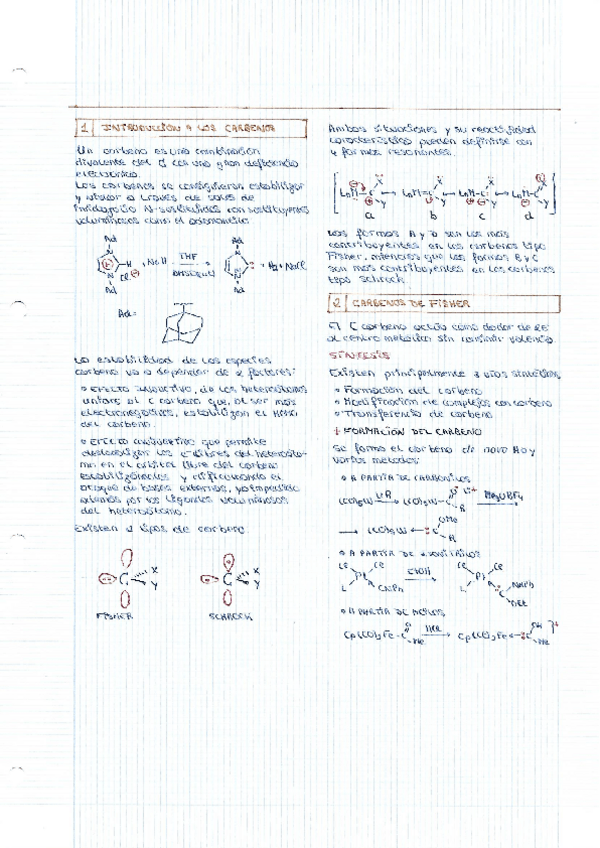 1 INTRODUCCIÓN A LOS CARBENOS
Un carbeno es una combinación
divalente del C con una gran deficiencia
electrónica.
Los carbenos se consiguieron estabilizar
y aislar a través de sales de
imidazolio N-sustituidas con sustituyentes
voluminosos como el adamantilo
Ad Ad
N N
H + NaH THF + H2 + NaCl
N Cl N
Ad Ad
Ad =
La estabilidad de las especies
carbeno va a depender de 2 factores:
efecto inductivo, de los heteroátomos
unidos al C carbeno que, al ser más
electronegativos, estabilizan el HOMO
del carbeno.
Efecto conjugativo que permite
deslocalizar los e- libres del heteroáto-
mo en el orbital libre del carbeno
estabilizándolos y dificultando el
ataque de bases externas, ya impedido
además por los ligandos voluminosos
del heteroátomo.
Existen 2 tipos de carbeno:
C X Y C X Y
FISHER SCHROCK
Ambas situaciones y su reactividad
característica pueden definirse con
4 formas resonantes.
LnM-C X Y LnM=C X Y LnM-C X Y LnM-C X Y
a b c d
Las formas A y D son las más
contribuyentes en los carbenos tipo
Fisher, mientras que las formas B y C
son más contribuyentes en los carbenos
tipo Schrock.
2 CARBENOS DE FISHER
El C carbeno actúa como dador de 2e-
al centro metálico sin
SÍNTESIS
Existen principalmente 3 vías sintéticas
Formación del carbeno
Modificación de complejos con carbeno
Transferencia de carbeno
FORMACIÓN DEL CARBENO
Se forma el carbeno de novo. Hay
varios métodos:
A PARTIR DE CARBONILOS
(CO)5W LiR (CO)5W-C O Li+ R Me3OBF4
(CO)5W C OMe R
A PARTIR DE ISONITRILOS
Cl Cl Pt L CNPh EtOH Cl Cl Pt L C NHPh OEt
A PARTIR DE ACILOS
Cp(CO)2Fe-C O Me HCl Cp(CO)2Fe C OH Me +